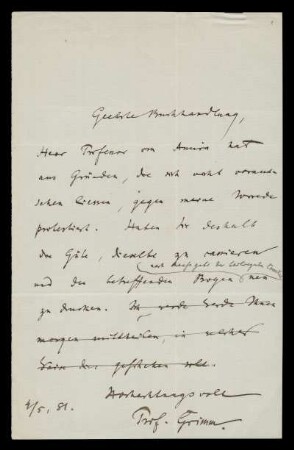 Geehrte Buchhandlung,
Herr Professor von Amira hat
aus Gründen, die sich wohl voraus
sehen liessen, gegen meine Vorrede
protestiert. Haben Sie deshalb
die Güte, dieselbe zu cassieren
nach Massgabe der
und den betreffenden Bogen neu
zu drucken. Ich werde Ihnen
morgen mittheilen, in welcher
Form das geschehen soll.
Hochachtungsvoll
4/5. 81.
Prof. Grimm.